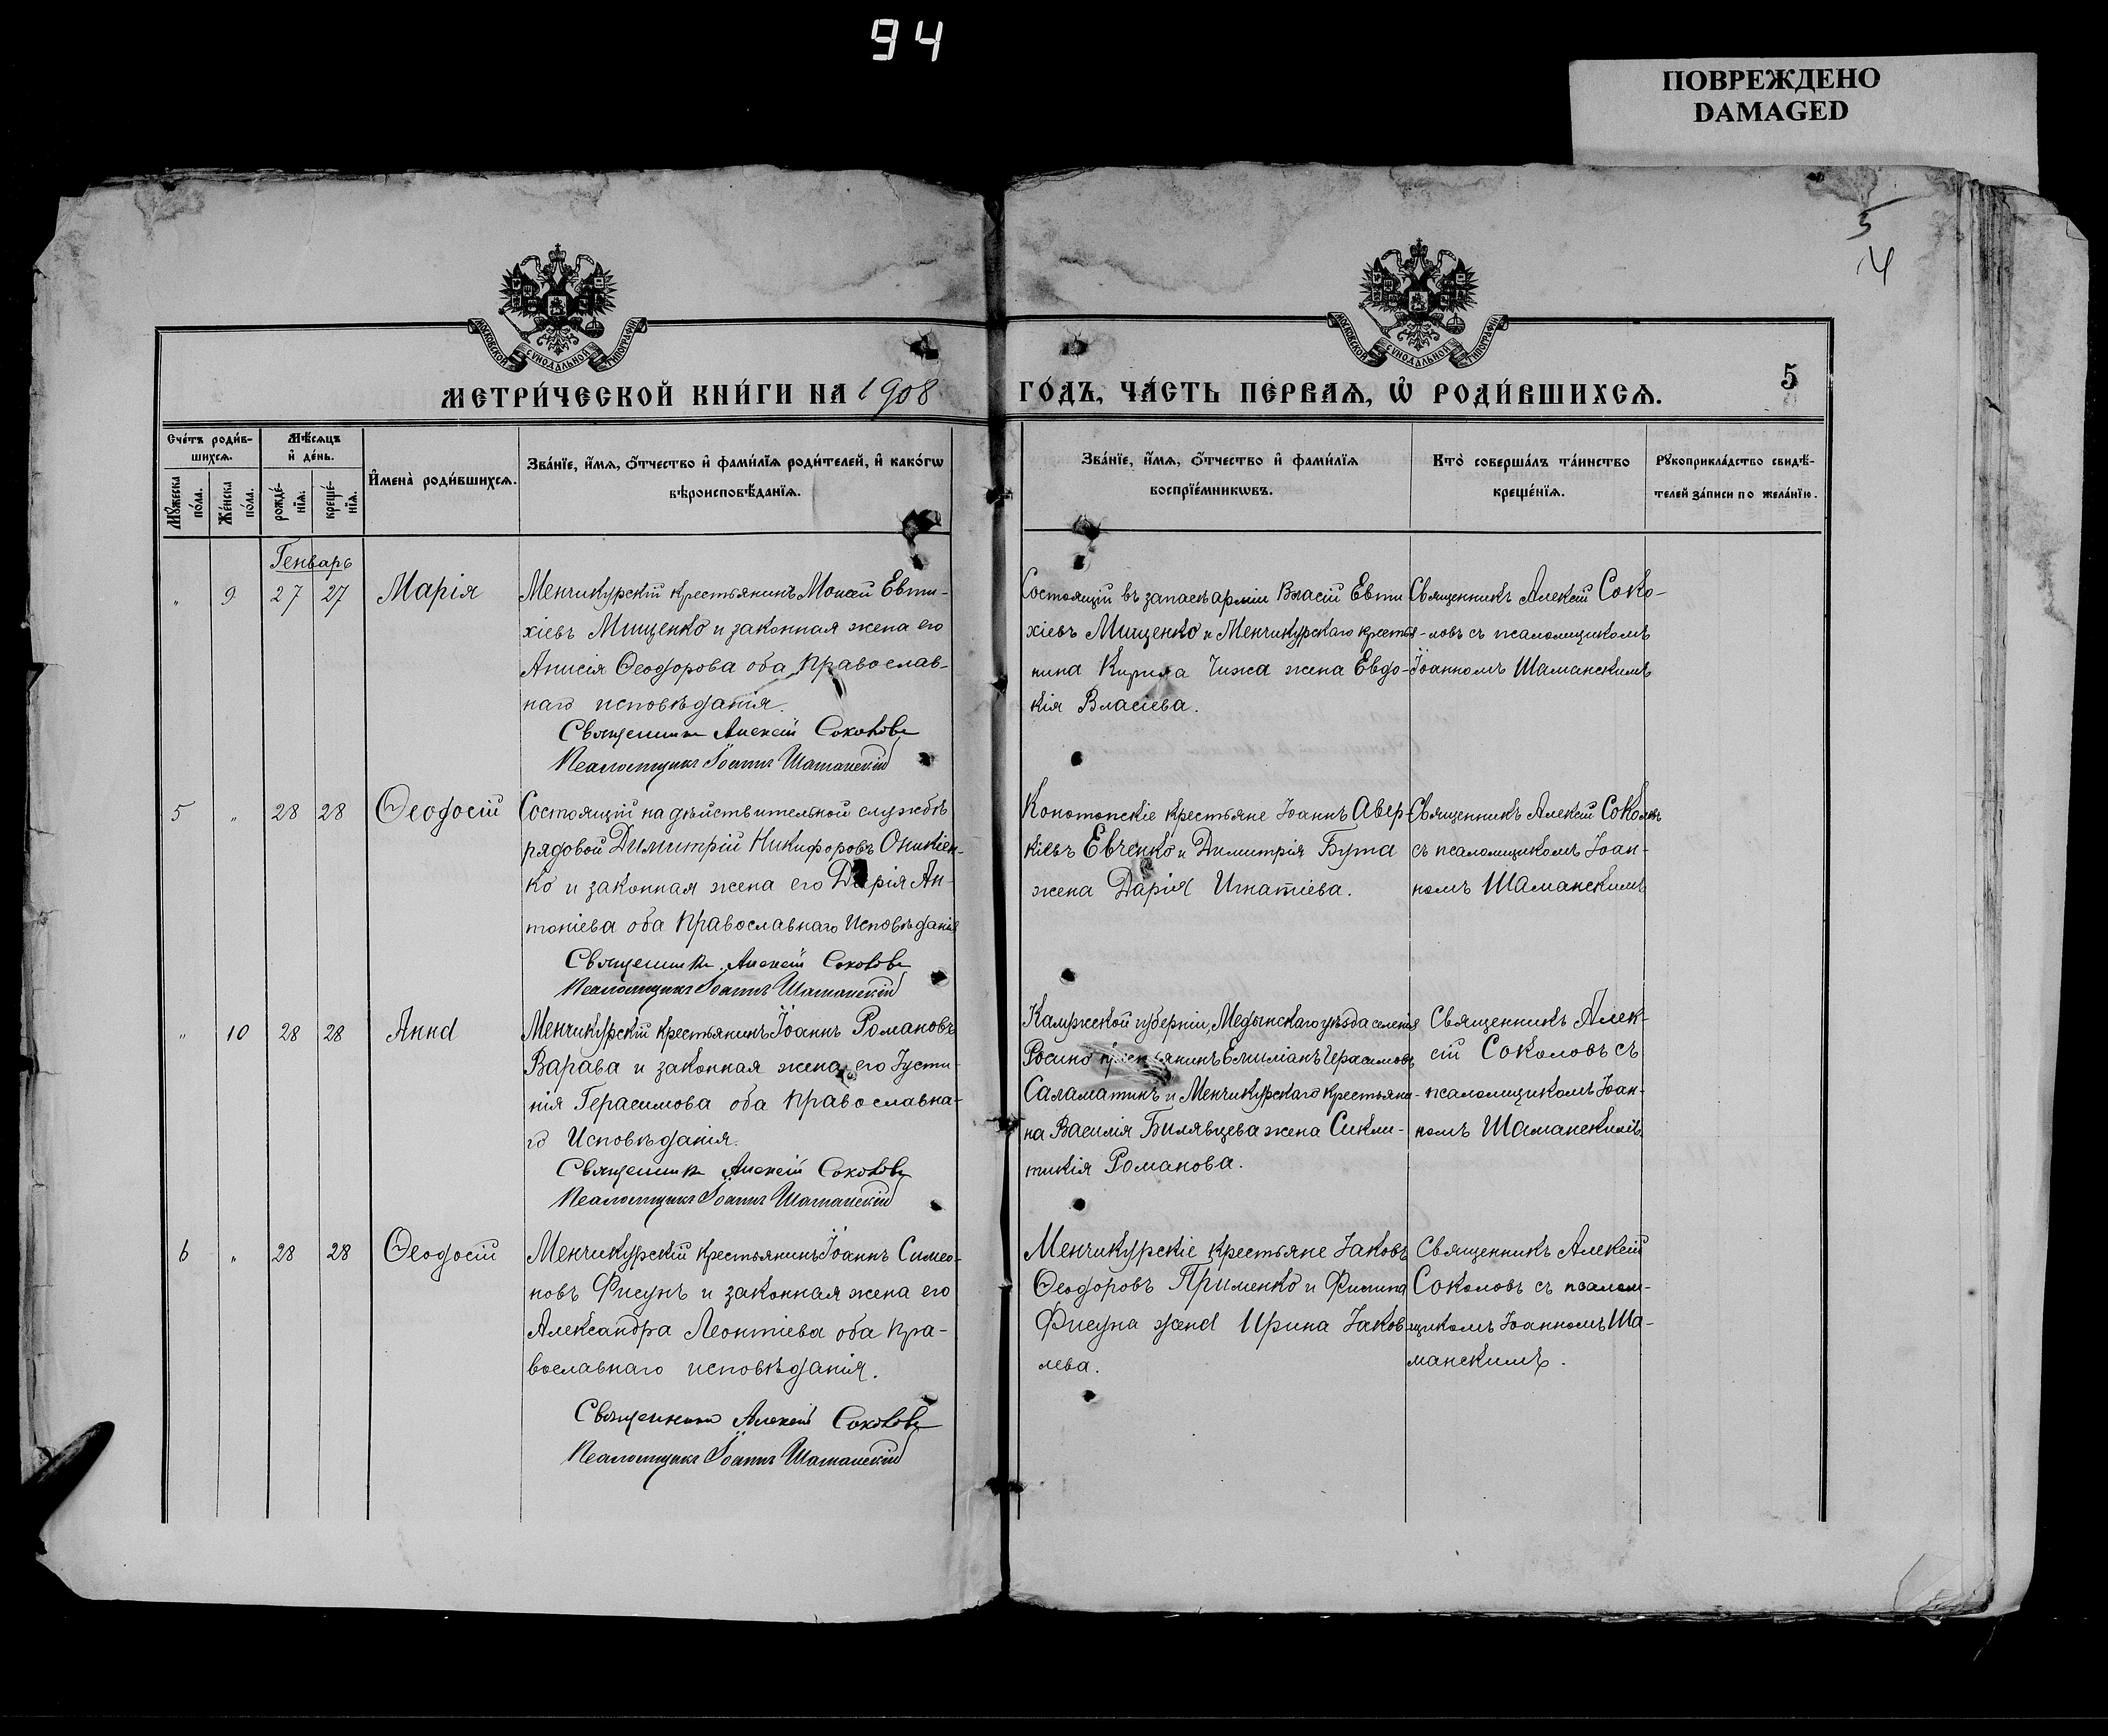 94
ПОВРЕЖДЕНО
DAMAGED
5
4
МОСКОВСКОЙ СѴНОДАЛЬНОЙ ТИПОГРАФІИ
МОСКОВСКОЙ СѴНОДАЛЬНОЙ ТИПОГРАФІИ
МЕТРИ́ЧЕСКОЙ КНИ́ГИ НА 1908
ГО́ДЪ, ЧА́СТЬ ПЕ́РВАѦ, Ѡ҆ РОДИ́ВШИХСѦ.
5
Сче́тъ роди́в-
шихсѧ.
Мꙋ́жеска по́ла.
Же́нска по́ла.
Мѣ́сѧцъ
и҆ де́нь.
рожде́-
нїѧ.
креще́-
нїѧ.
И҆мена̀ роди́вшихсѧ.
Зва́нїе, и҆́мѧ, ѻ҆́тчество и҆ фами́лїѧ роди́телей, и҆ како́гѡ
вѣроисповѣ́данїѧ.
Зва́нїе, и҆́мѧ, ѻ҆́тчество и҆ фами́лїѧ
воспрїе́мникѡвъ.
Кто̀ соверша́лъ та́инство
креще́нїѧ.
Рꙋкоприкла́дство свидѣ́-
телей за́писи по жела́нїю.
Генварь
" 9 27 27 Марія
Менчикурскій крестьянинъ Моисей Евти-
хіевъ Мищенко и законная жена его
Анисія Ѳеодорова оба Православ-
наго исповѣданія.
Священникъ Алексій Соколовъ
Псаломщикъ Іоаннъ Шаманскій
Состоящій въ запасѣ арміи Власій Евти
хіевъ Мищенко и Менчикурскаго крестья-
нина Кирила Чижа жена Евдо-
кія Власіева.
Священникъ Алексій Соко-
ловъ съ псаломщикомъ
Іоанномъ Шаманскимъ
5 " 28 28 Ѳеодосій
Состоящій на дѣйствительной службѣ
рядовой Димитрій Никифоровъ Оникіен-
ко и законная жена его Дарія Ан-
тоніева оба Православнаго Исповѣданія
Священникъ Алексій Соколовъ
Псаломщикъ Іоаннъ Шаманскій
Конотопскіе крестьяне Іоаннъ Авер-
кіевъ Евченко и Димитрія Бута
жена Дарія Игнатіева.
Священникъ Алексій Соколовъ
съ псаломщикомъ Іоан-
номъ Шаманскимъ
" 10 28 28 Анна
Менчикурскій крестьянинъ Іоаннъ Романовъ
Варава и законная жена его Іусти-
нія Герасимова оба Православна-
го Исповѣданія.
Священникъ Алексій Соколовъ
Псаломщикъ Іоаннъ Шаманскій
Калужской губерніи, Медынскаго уѣзда селенія
крестьянинъ Емиліанъ Герасимовъ
Саламатинъ и Менчикурскаго крестьяни-
на Василія Билявцева жена Сикли-
тикія Романова.
Священникъ Алек-
сій Соколовъ съ
псаломщикомъ Іоан-
номъ Шаманскимъ.
6 " 28 28 Ѳеодосій
Менчикурскій крестьянинъ Іоаннъ Симео-
новъ Фисунъ и законная жена его
Александра Леонтіева оба Пра-
вославнаго исповѣданія.
Священникъ Алексій Соколовъ
Псаломщикъ Іоаннъ Шаманскій
Менчикурскіе крестьяне Іаковъ
Ѳеодоровъ Применко и Филипа
Фисуна жена Ирина Іаков-
лева.
Священникъ Алексій
Соколовъ съ псалом-
щикомъ Іоанномъ Ша-
манскимъ.